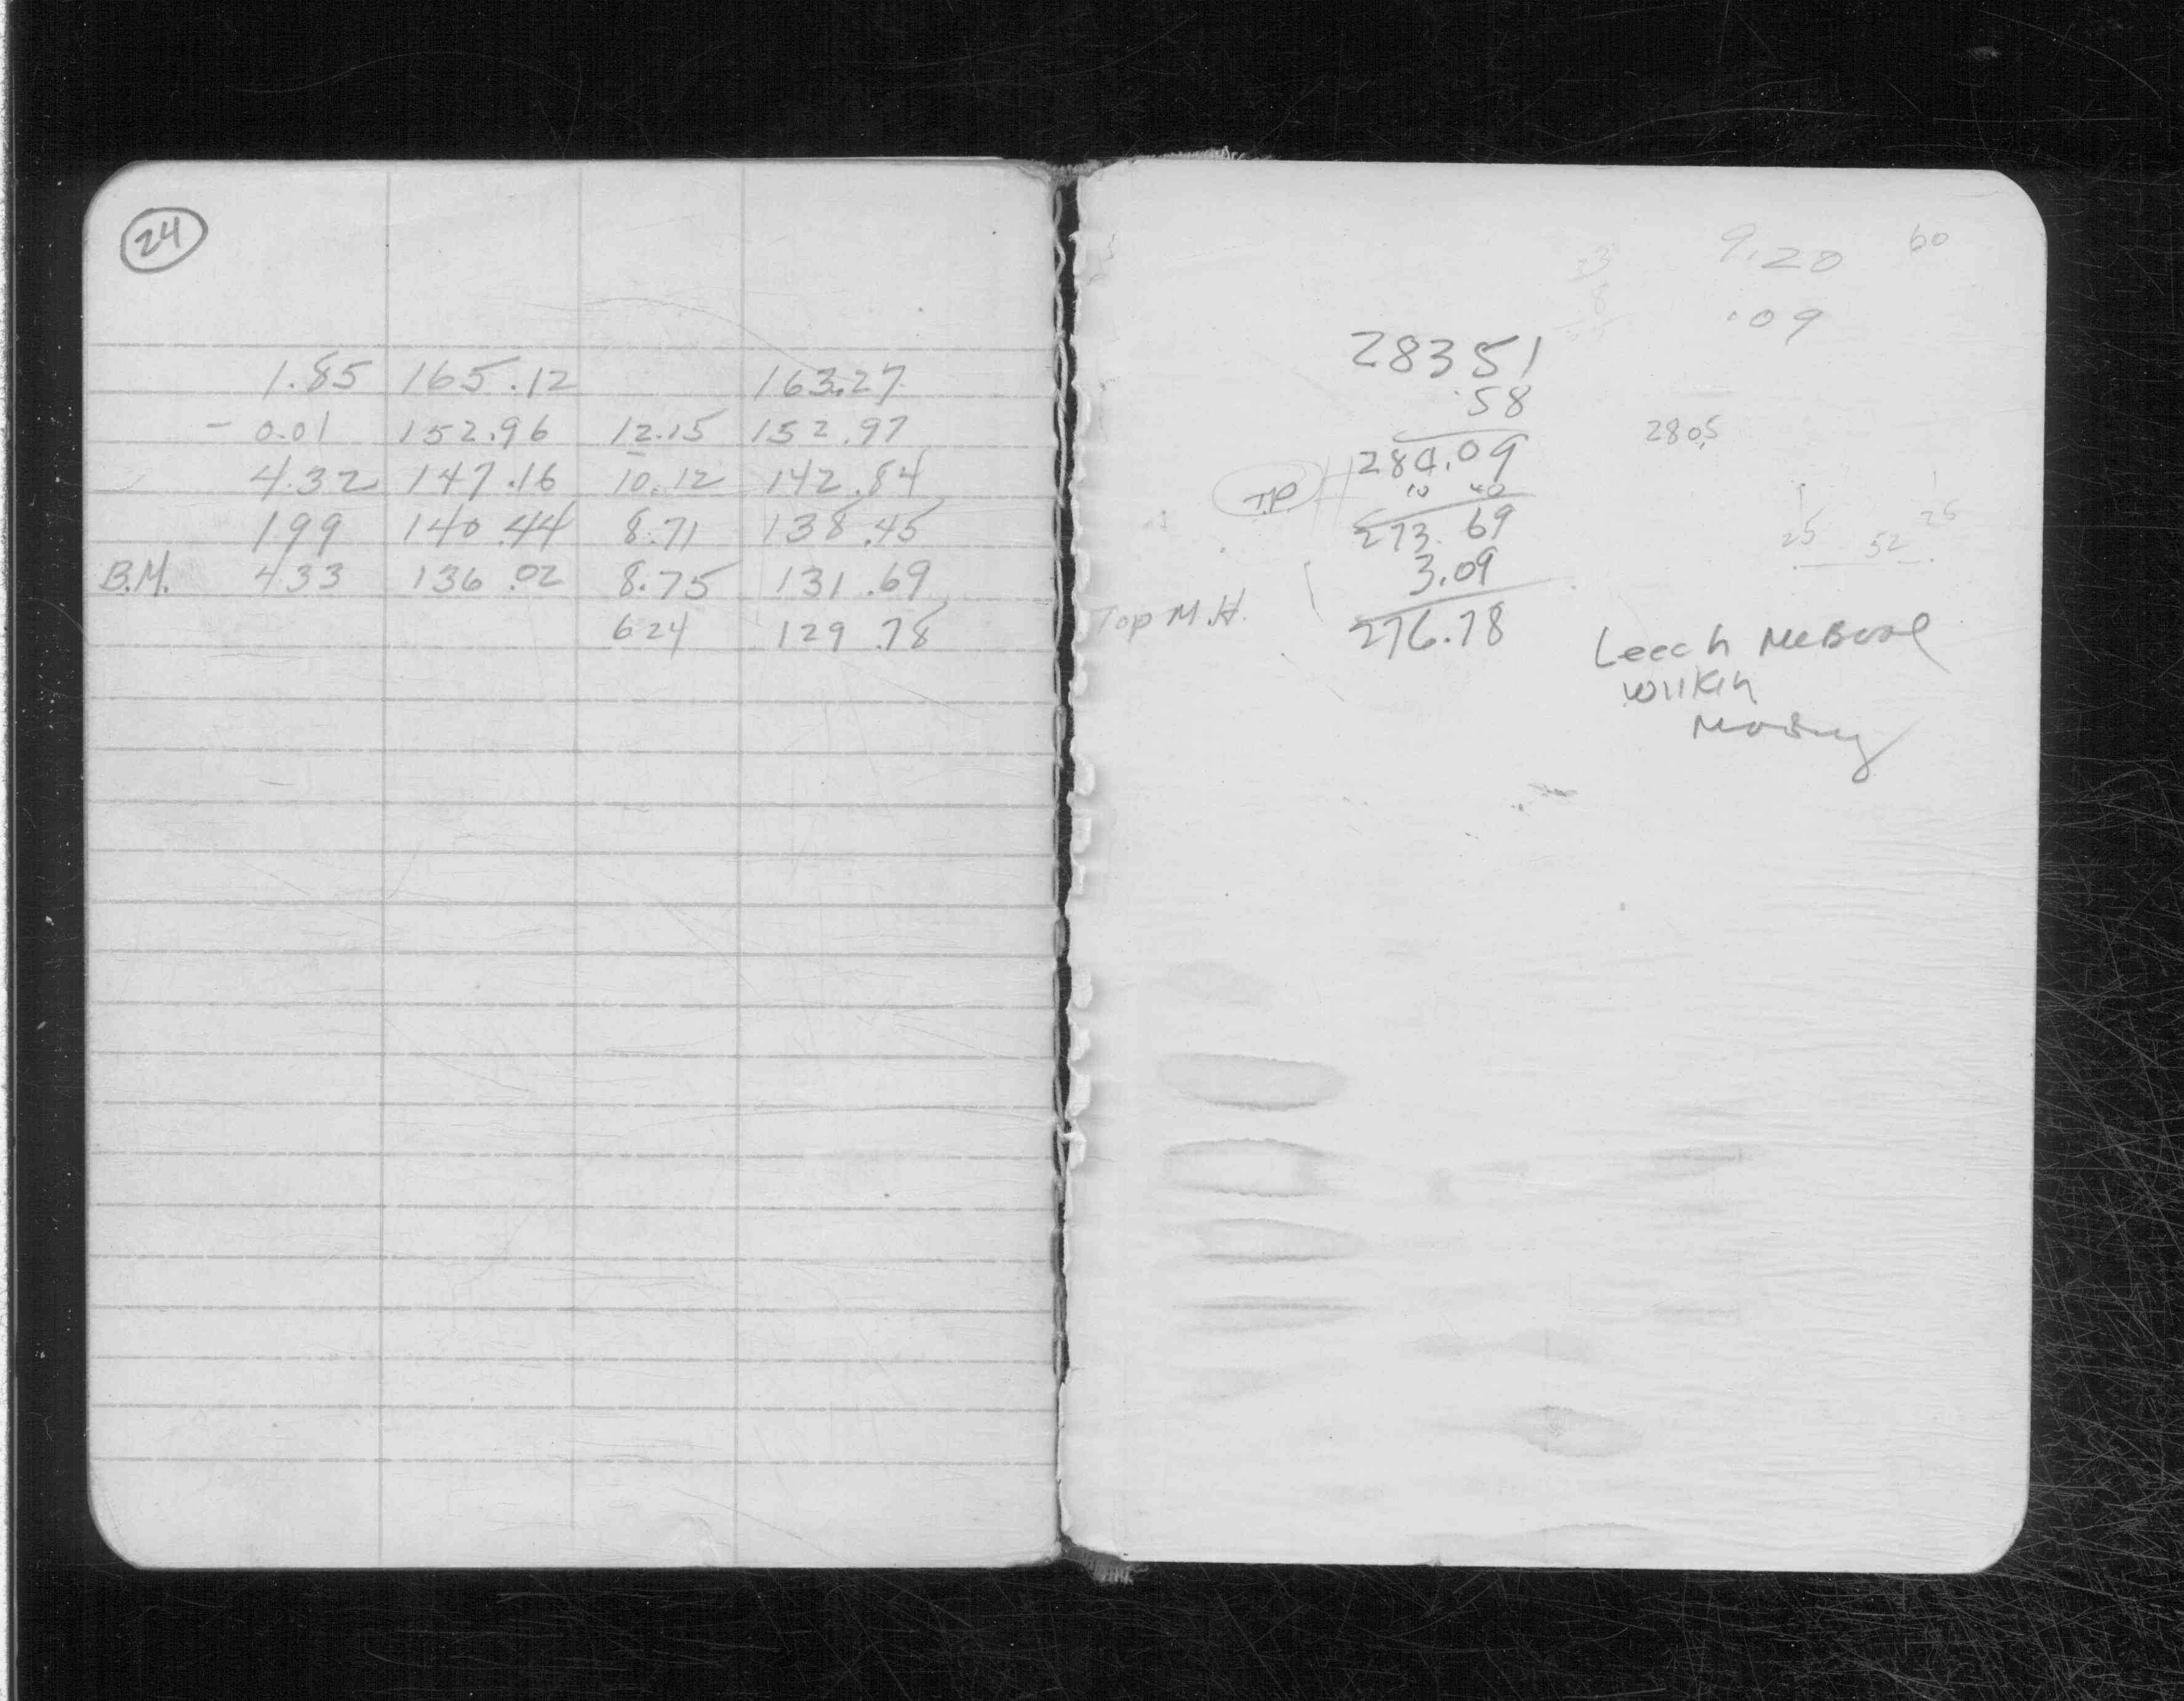 24
1.85 165.12 163.27
- 0.01 152.96 12.15 152.97
4.32 147.16 10.12 142.84
199 140.44 8.71 138.45
B.M. 433 136.02 8.75 131.69
624 129.78
9.20 60
.09
28351
.58
284.09
2805
TP 10 40
273.69
3.09
25 52 25
Top M.H. 276.78
Leech